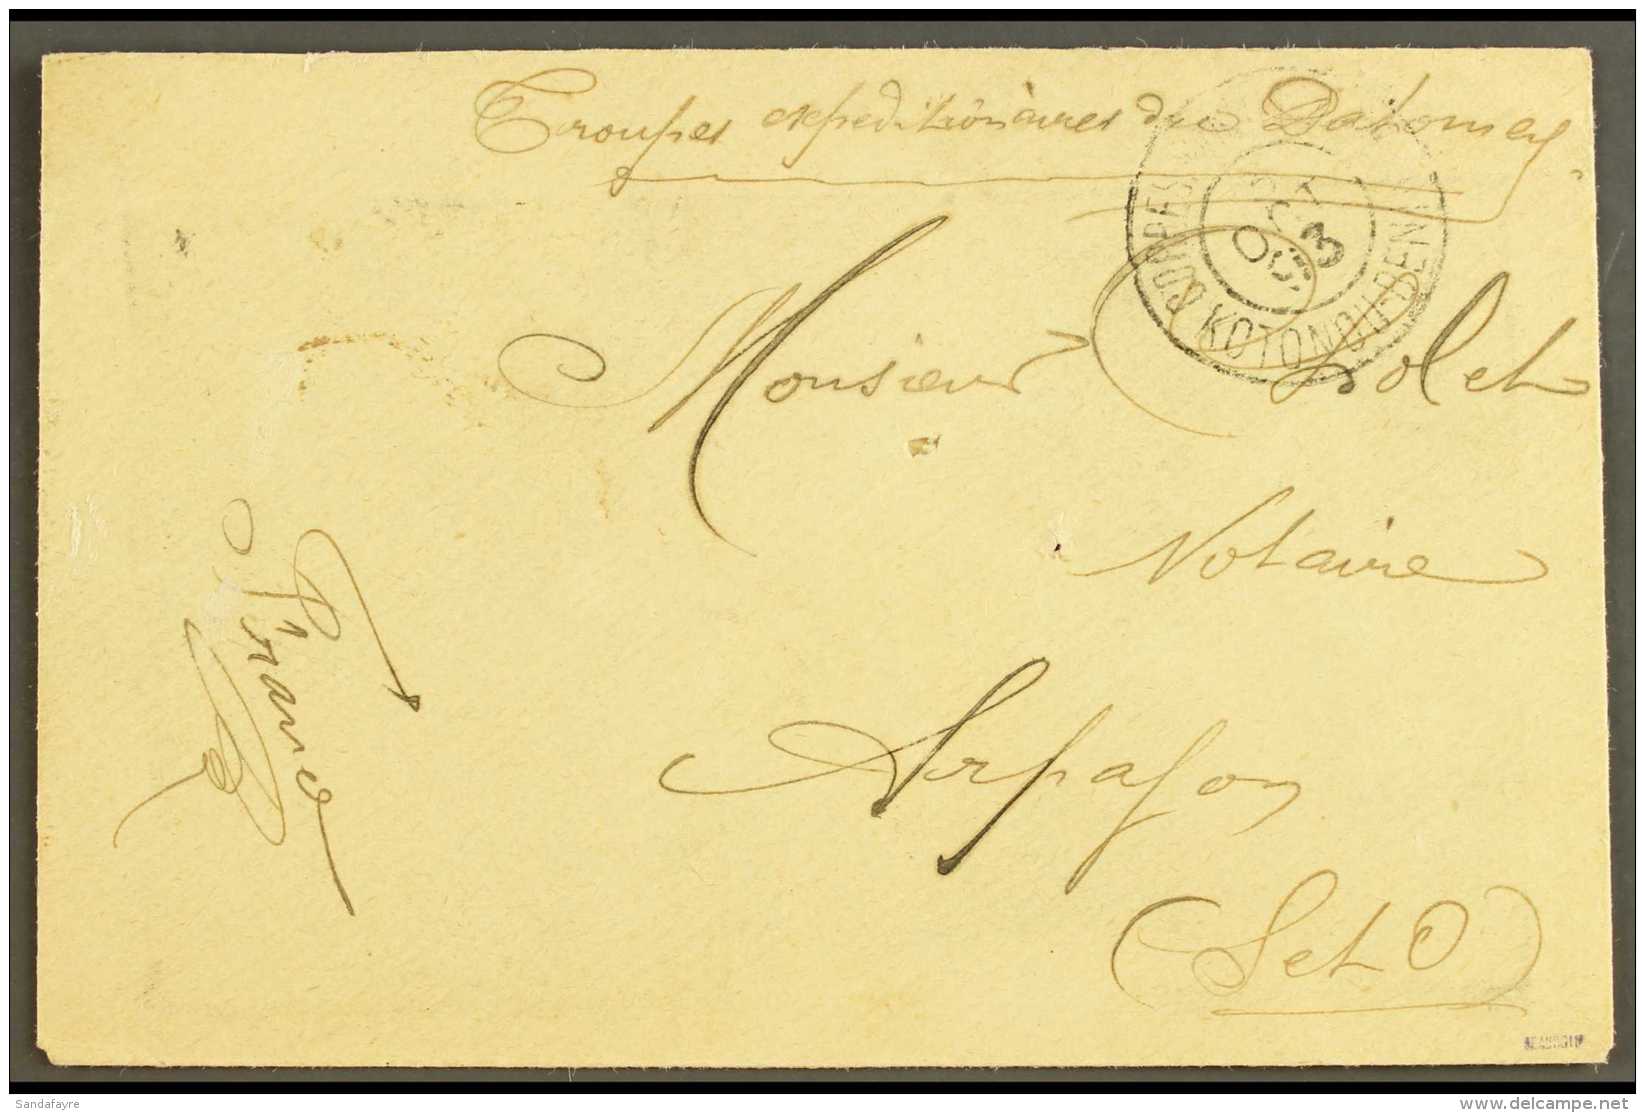 Troupes expéditionnaires du Dahomey
OCT
93
CORPES
KOTONOU-BENIN
Monsieur
Notaire
Arpajon
(S et O)
France
Sandafayre
delcampe.net